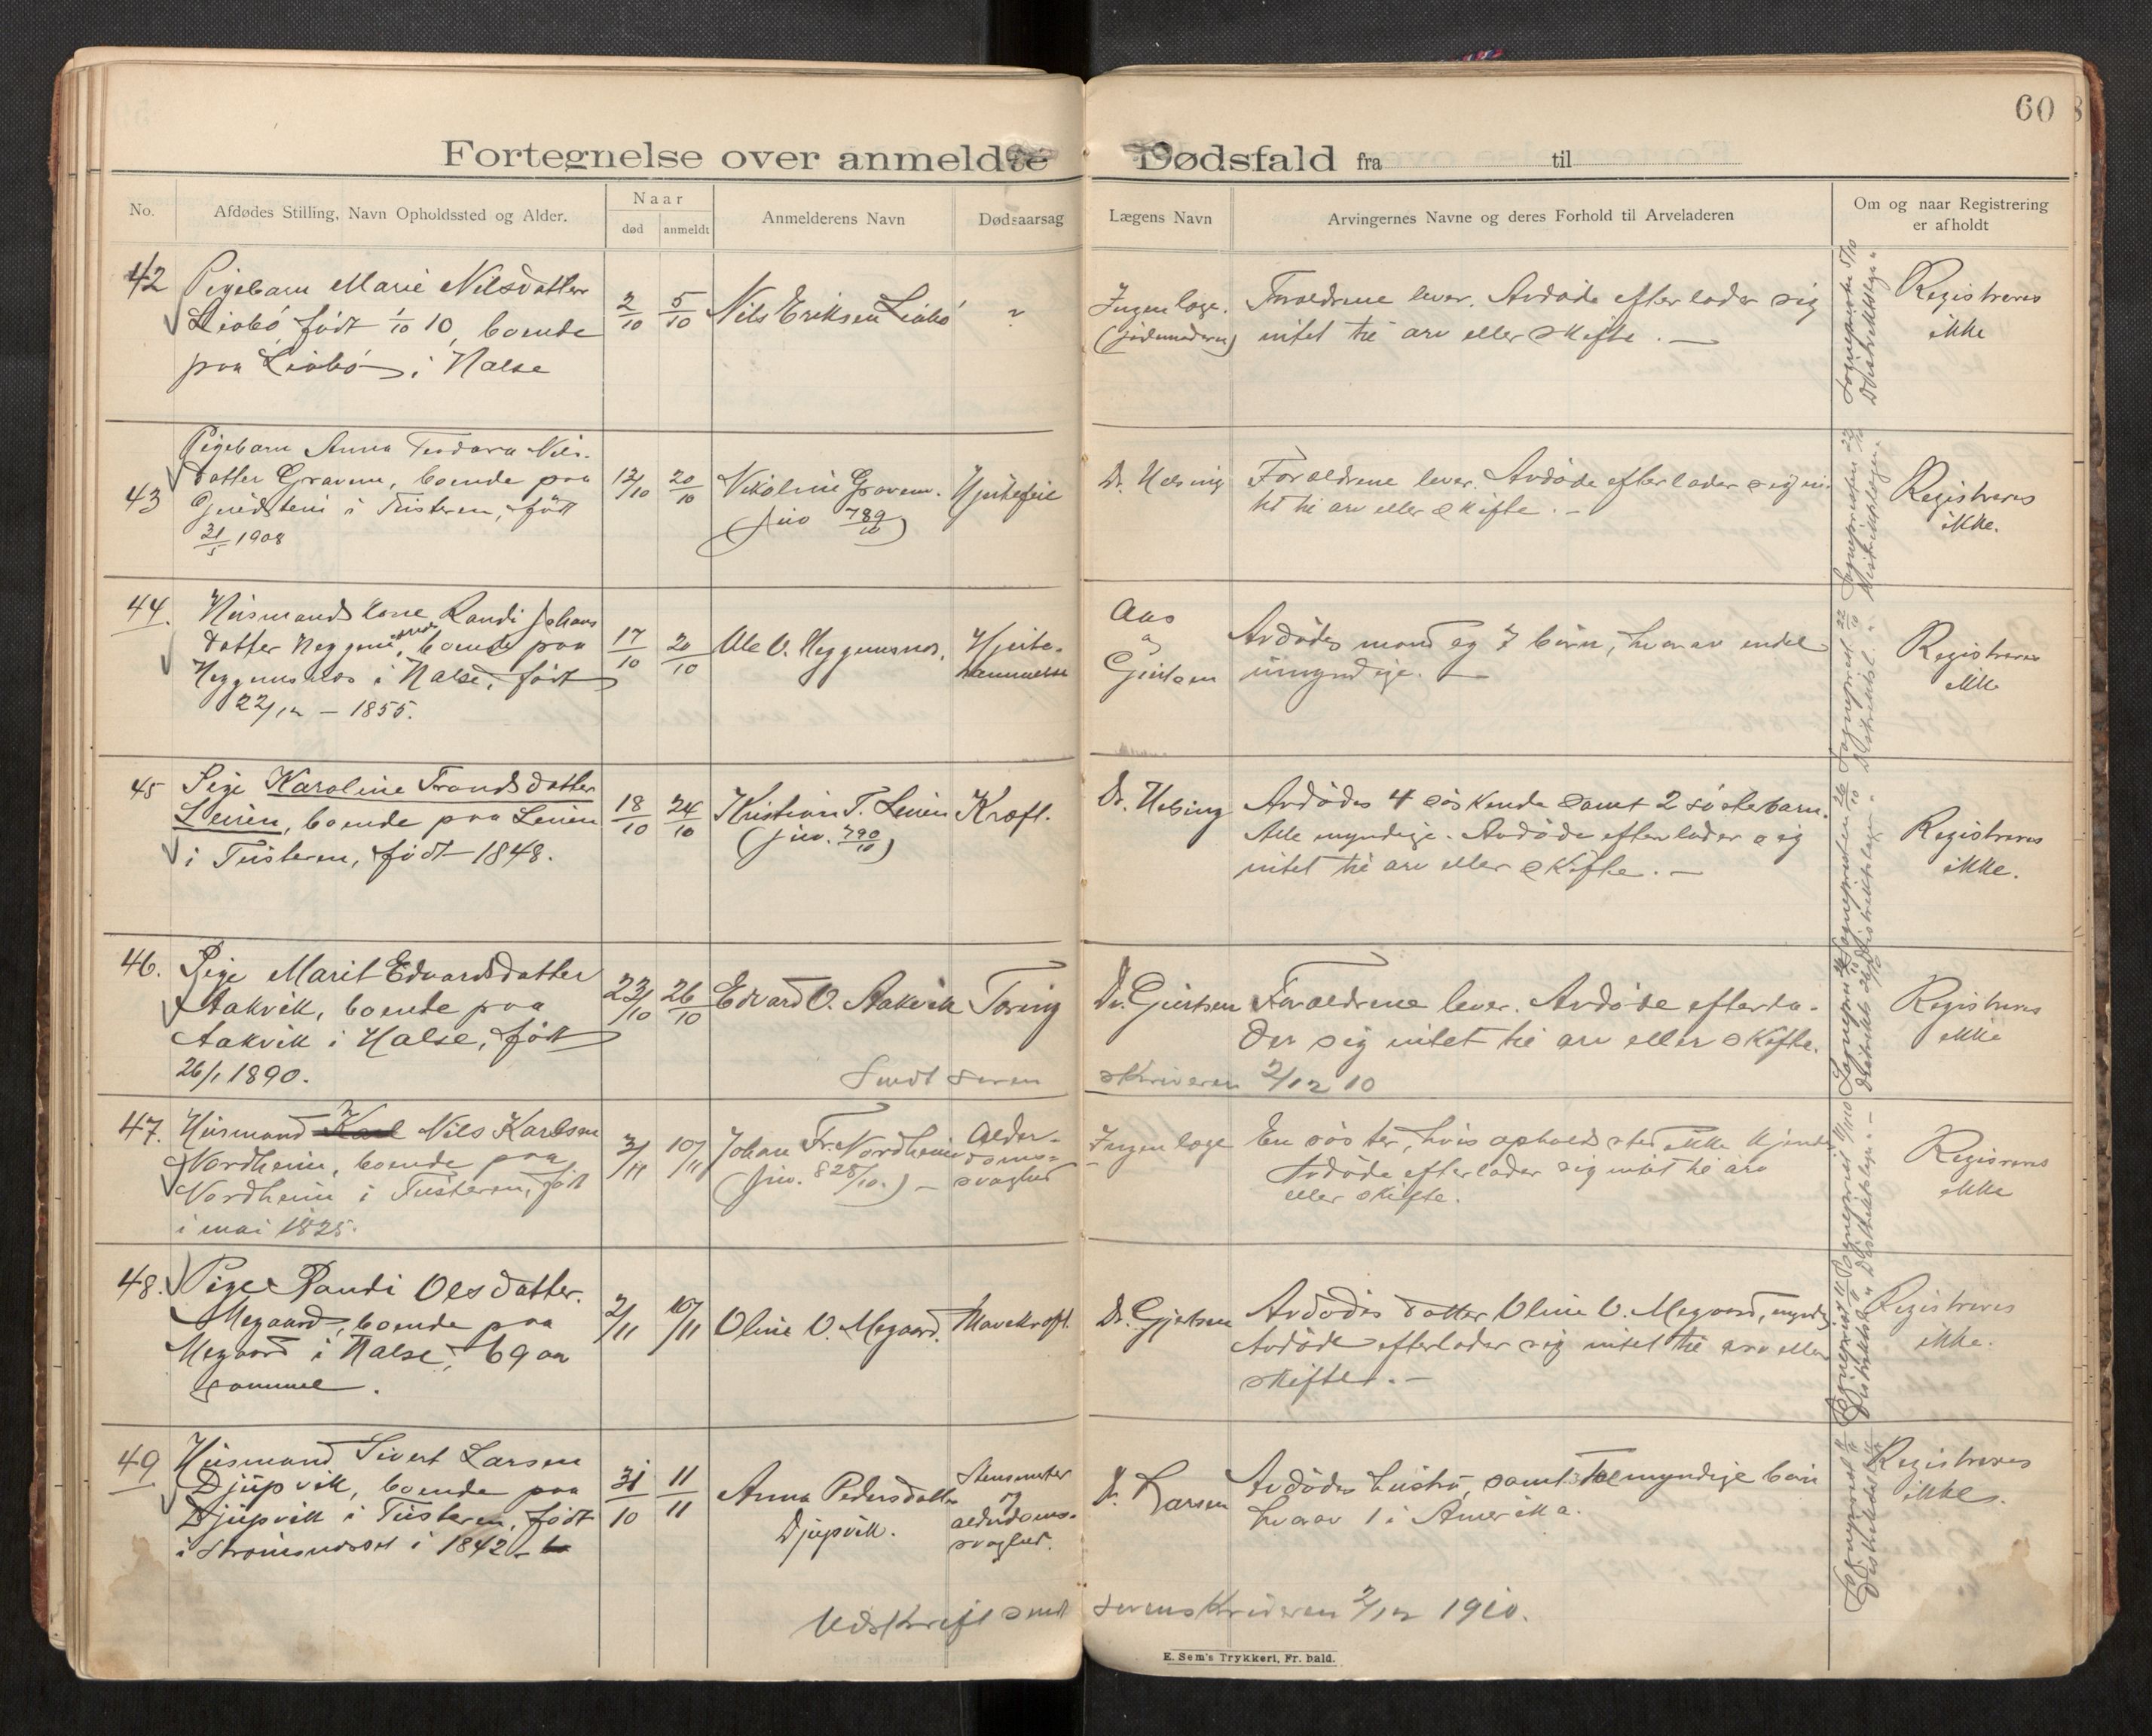 60
Fortegnelse over anmeldte Dødsfald fra til
No.
Afdødes Stilling, Navn Opholdssted og Alder.
Naar
død
anmeldt
Anmelderens Navn
Dødsaarsag
Lægens Navn
Arvingernes Navne og deres Forhold til Arveladeren
Om og naar Registrering
er afholdt
42
Pigebarn Marie Nilsdatter
Liabø, født 1/10 10, boende
paa Liabø i Halse
2/10
5/10
Nils Eriksen Liabø
?
Ingen læge.
(jødmoderen)
Forældrene lever. Avdøde efterlader sig
intet til arv eller skifte. —
Registreres
ikke
43
Pigebarn Anna Teodora Nils-
datter Gravem, boende paa
i Tusteren, født
31/5 1908
12/10
20/10
Nikoline Gravem.
(jnv 789/10)
Hjertefeil
Dr. Helsing
Forældrene lever. Avdøde efterlader sig in-
tet til arv eller skifte. –
Registreres
ikke.
44.
Husmandskone Randi Johans
datter Heggemsnes, boende paa
Heggemsnes i Halse, født
22/12 – 1855.
17/10
20/10
Ole O. Heggemsnes.
Hjerte-
lammelse
Aas
og
Gjertsen
Avdødes mand og 7 børn, hvorav endel
umyndige. —
Registreres
ikke
45
Pige Karoline Trondsdatter
Leirin, boende paa Leirin
i Tusteren, født 1848.
18/10
24/10
Kristian T. Leirin
(jnv. 790/10)
Kræft.
Dr. Helsing
Avdødes 4 søskende samt 2 søstebarn.
Alle myndige. Avdøde efterlader sig
intet til arv eller skifte. —
Registreres
ikke.
46.
Pige Marit Edvardsdatter
Aakvik, boende paa
Aakvik i Halse, født
26/1 1890.
23/10
26/10
Edvard O. Aakvik
Tæring
Dr. Gjertsen
Forældrene lever. Avdøde efterla-
der sig intet til arv eller skifte.
Registreres
ikke
Sendt sorenskriveren 2/12 10
47.
Husmand Karl Nils Karlsen
Nordheim, boende paa
Nordheim i Tusteren, født
i mai 1825.
3/11
10/11
Johan Fr. Nordheim
(jnv. 828/10.) –
Alder-
doms-
svaghed
Ingen læge
En søster, hvis opholdsted ikke kjendes.
Avdøde efterlader sig intet til arv
eller skifte.
Regisreres
ikke
48.
Pige Randi Olsdatter.
Megaard, boende paa
Megaard i Halse, 69 aar
gammel.
2/11
10/11
Oline O. Megaard.
Mavekræft.
Dr. Gjertsen
Avdødes datter Oline O. Megaard, myndig.
Avdøde efterlader sig intet til arv eller
skifte. –
Registreres
ikke.
49
Husmand Sivert Larsen
Djupvik, boende paa
Djupvik i Tusteren, født
i Strømsnæset i 1842
31/10
11/11
Anna Pedersdatter
Djupvik.
og
alderdoms-
svaghed.
Dr. Larsen
Avdødes hustru, samt 3 myndige børn
hvorav 1 i Amerika.
Registreres
ikke.
Udskrift sendt sorenskriveren 2/12 1910.
E. Sem's Trykkeri, Fr.hald.